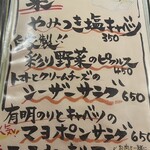 菜
やみつき塩キャベツ
350
自家製!!
彩り野菜のピクルス
450
トマトとクリームチーズの
シーザーサラダ650
有明のりとキャベツの
マヨポンサラダ650